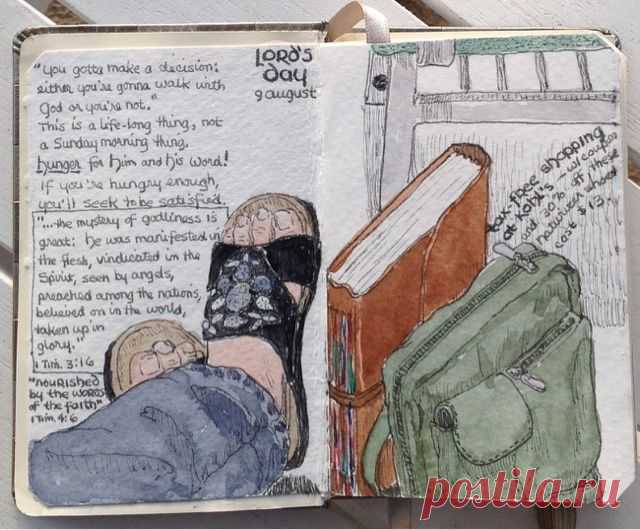 "You gotta make a decision:
either you're gonna walk with
God or you're not."
This is a life-long thing, not
a Sunday morning thing.
Hunger for Him and His Word!
If you're hungry enough,
you'll seek to be satisfied.
"...the mystery of godliness is
great: he was manifested in
the flesh, vindicated in the
Spirit, seen by angels,
preached among the nations,
believed on in the world,
taken up in
glory."
1 Tim. 3:16
"nourished
by the WORDS
of the faith"
1 Tim. 4:6
LORD'S
DAY
9 august
tax-free shopping
at Kohl's - w/ coupon
and 30% off these
naturalizer shoes
cost $13
postila.ru